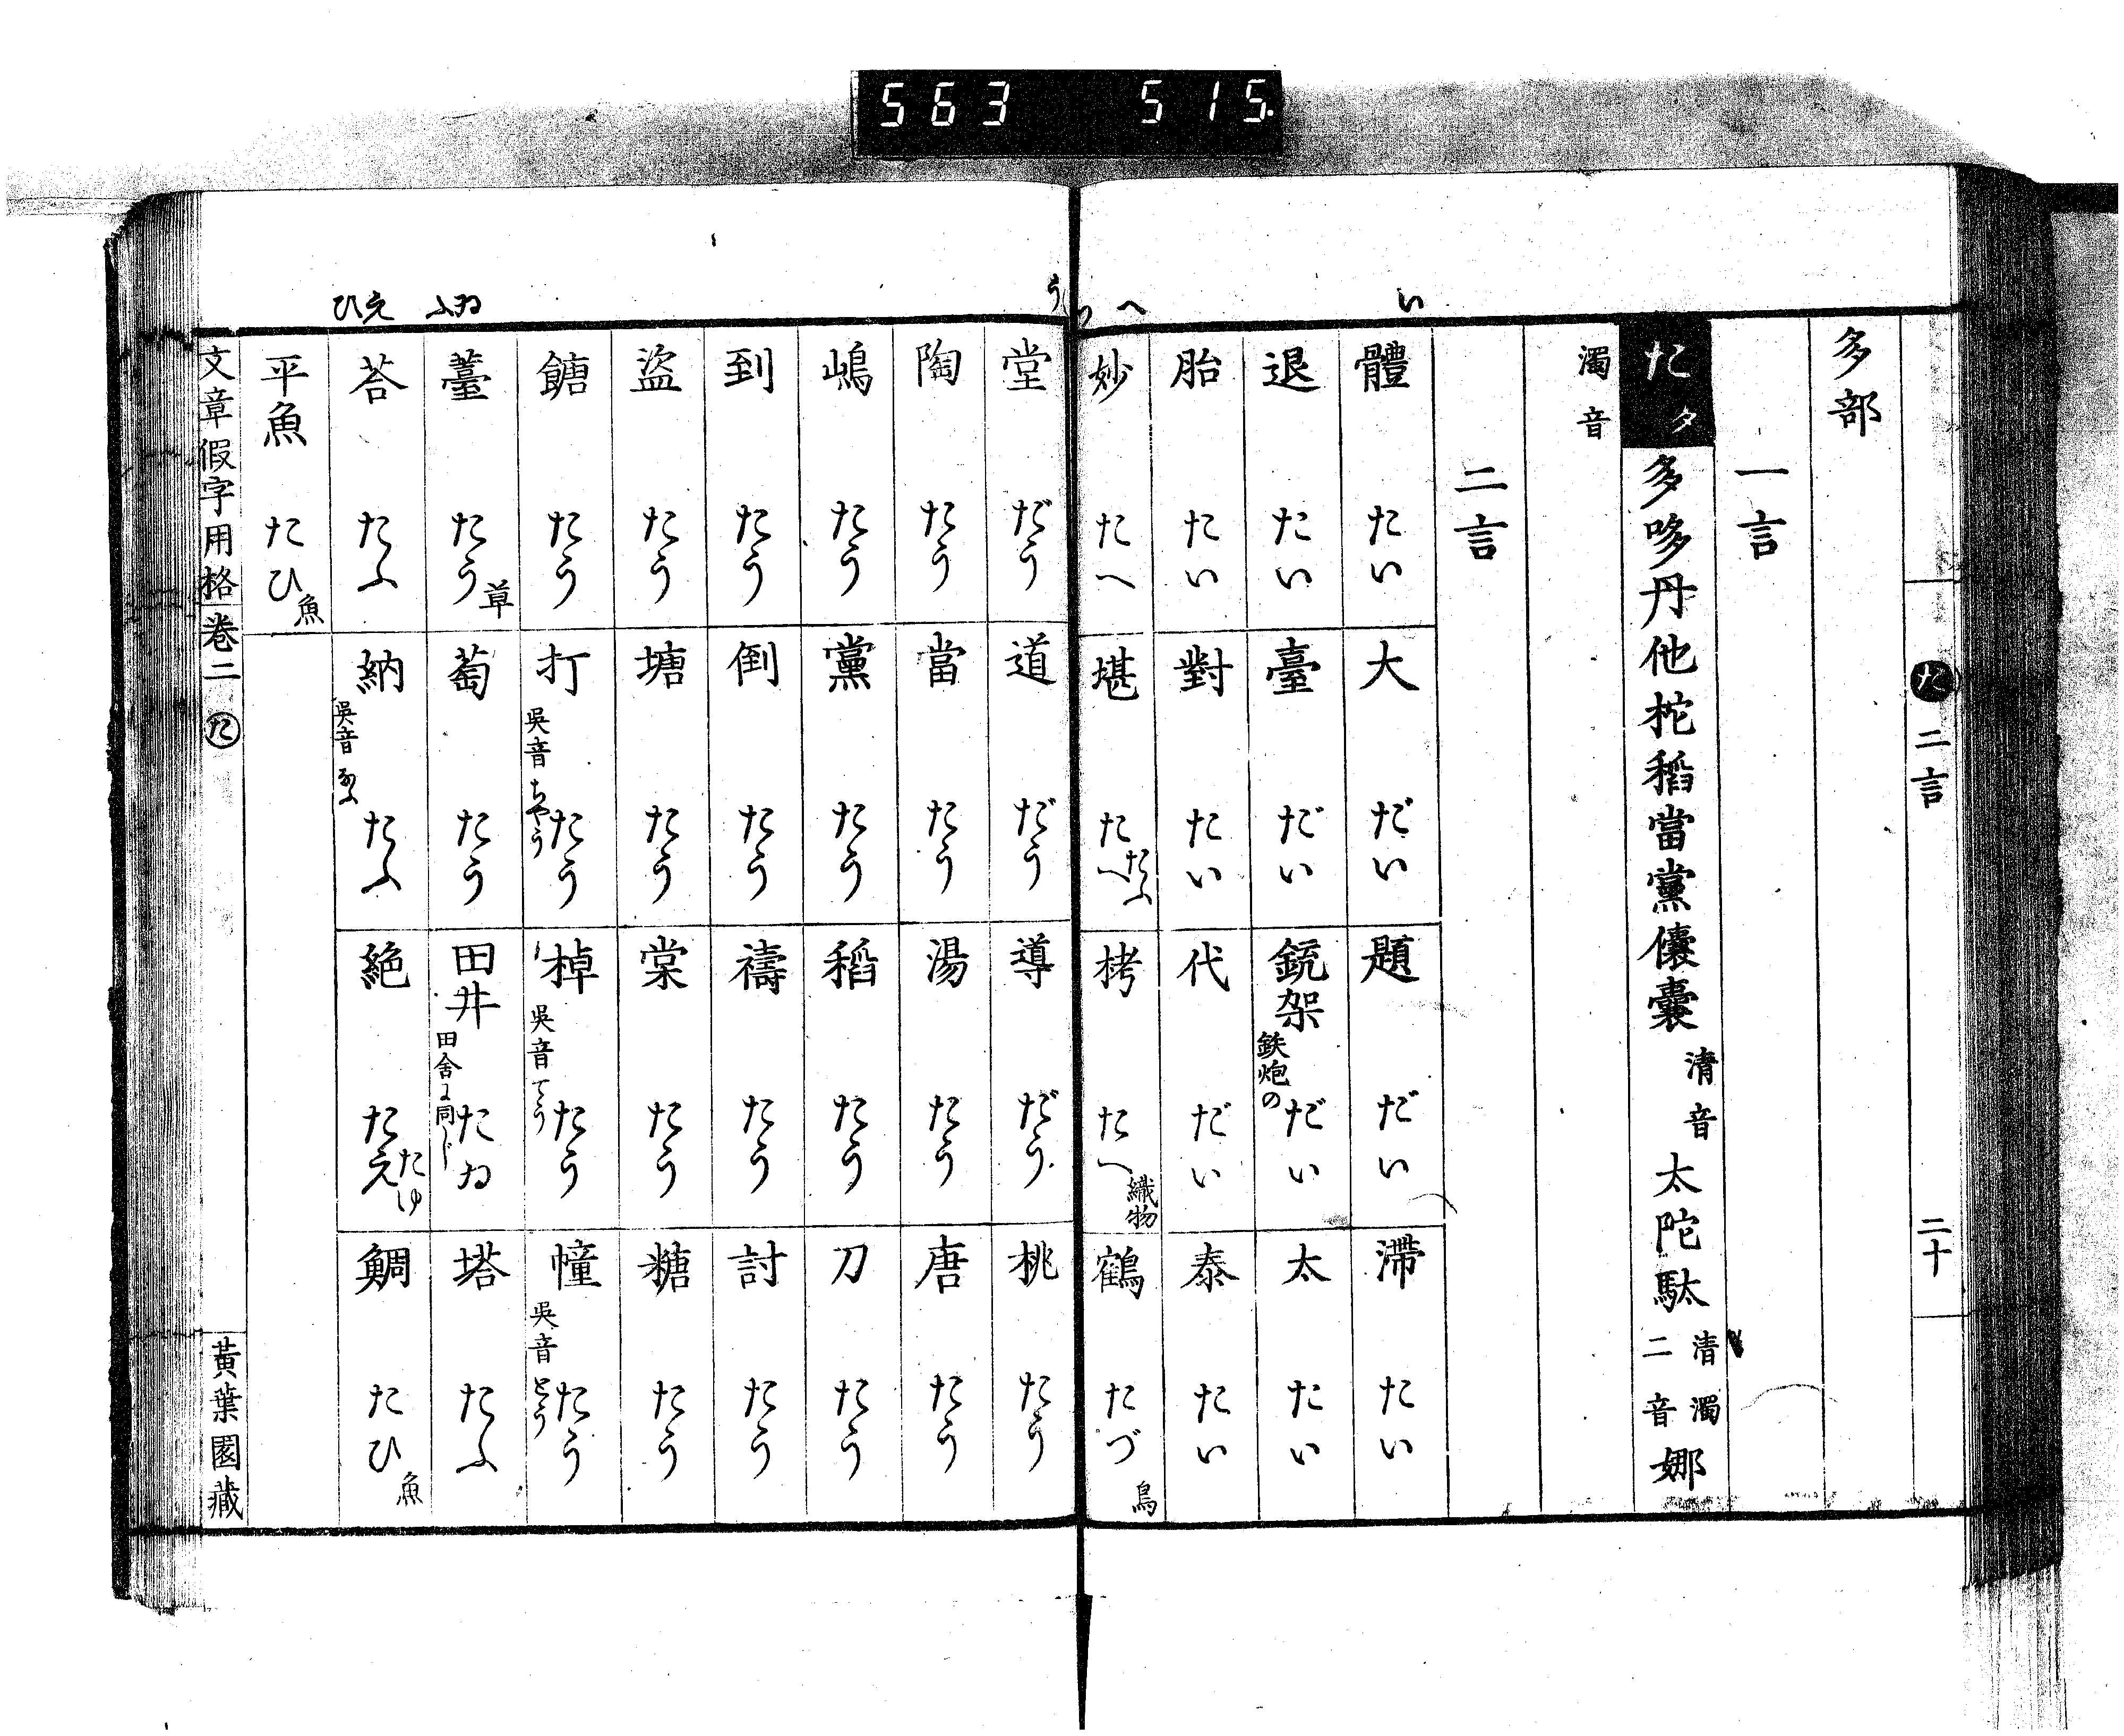 563 515
い
へ
つ
う
ふゐ
ひえ
た 二言 二十
多部
一言
たタ 多哆丹他柁稻當黨儻囊 清音 太陀駄 清濁二音 娜
濁音
二言
體 たい 大 だい 題 だい 滯 たい
退 たい 臺 だい 銃架 鉄炮の だい 太 たい
胎 たい 對 たい 代 だい 泰 たい
妙 たへ 堪 たへ たふ 栲 たへ 織物 鶴 たづ 鳥
堂 だう 道 だう 導 だう 桃 たう
陶 たう 當 たう 湯 たう 唐 たう
嶋 たう 黨 たう 稻 たう 刀 たう
到 たう 倒 たう 禱 たう 討 たう
盜 たう 塘 たう 棠 たう 糖 たう
餹 たう 打 吳音ちやう たう 棹 吳音てう たう 幢 吳音とう たう
薹 たう 草 萄 たう 田井 田舍に同じ たゐ 塔 たふ
荅 たふ 納 吳音なふ たふ 絶 たえ たゆ 鯛 たひ 魚
平魚 たひ 魚
文章假字用格 卷二 た 黃葉園藏